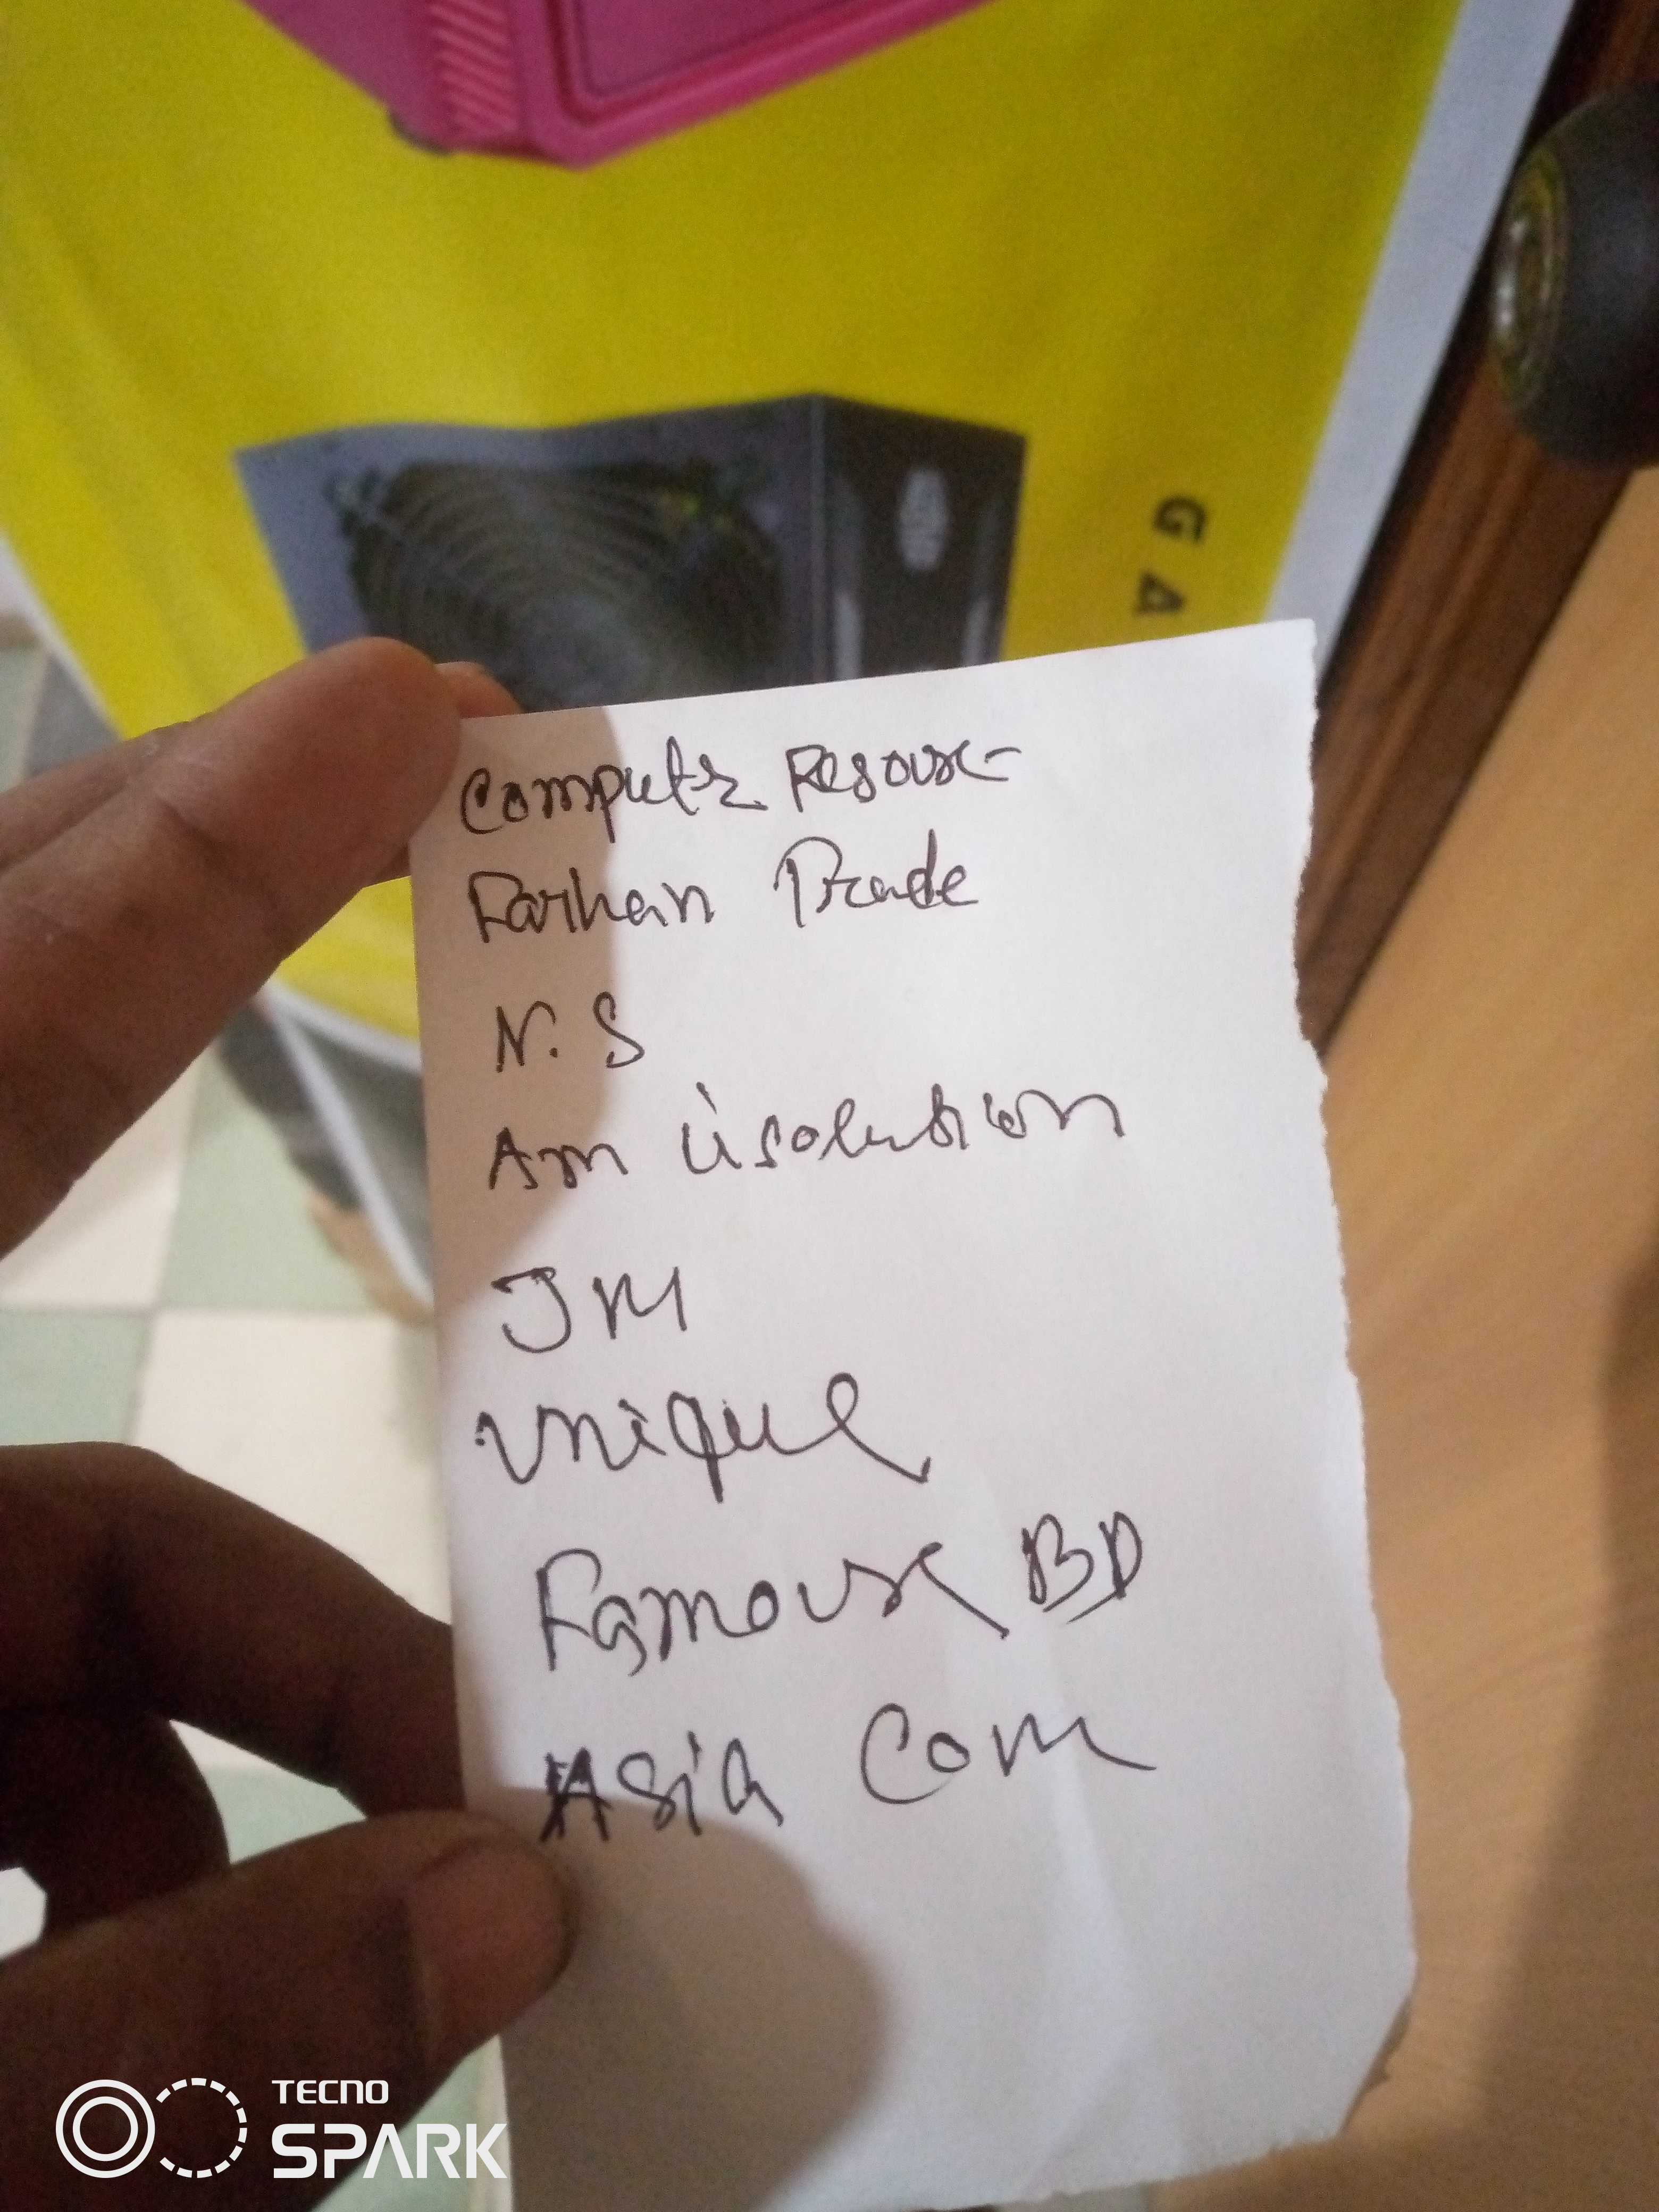 G A
Computer Resource
Farhan Trade
N. S
Am iisolution
JM
Unique
Famouse BD
Asia Com
TECNO
SPARK